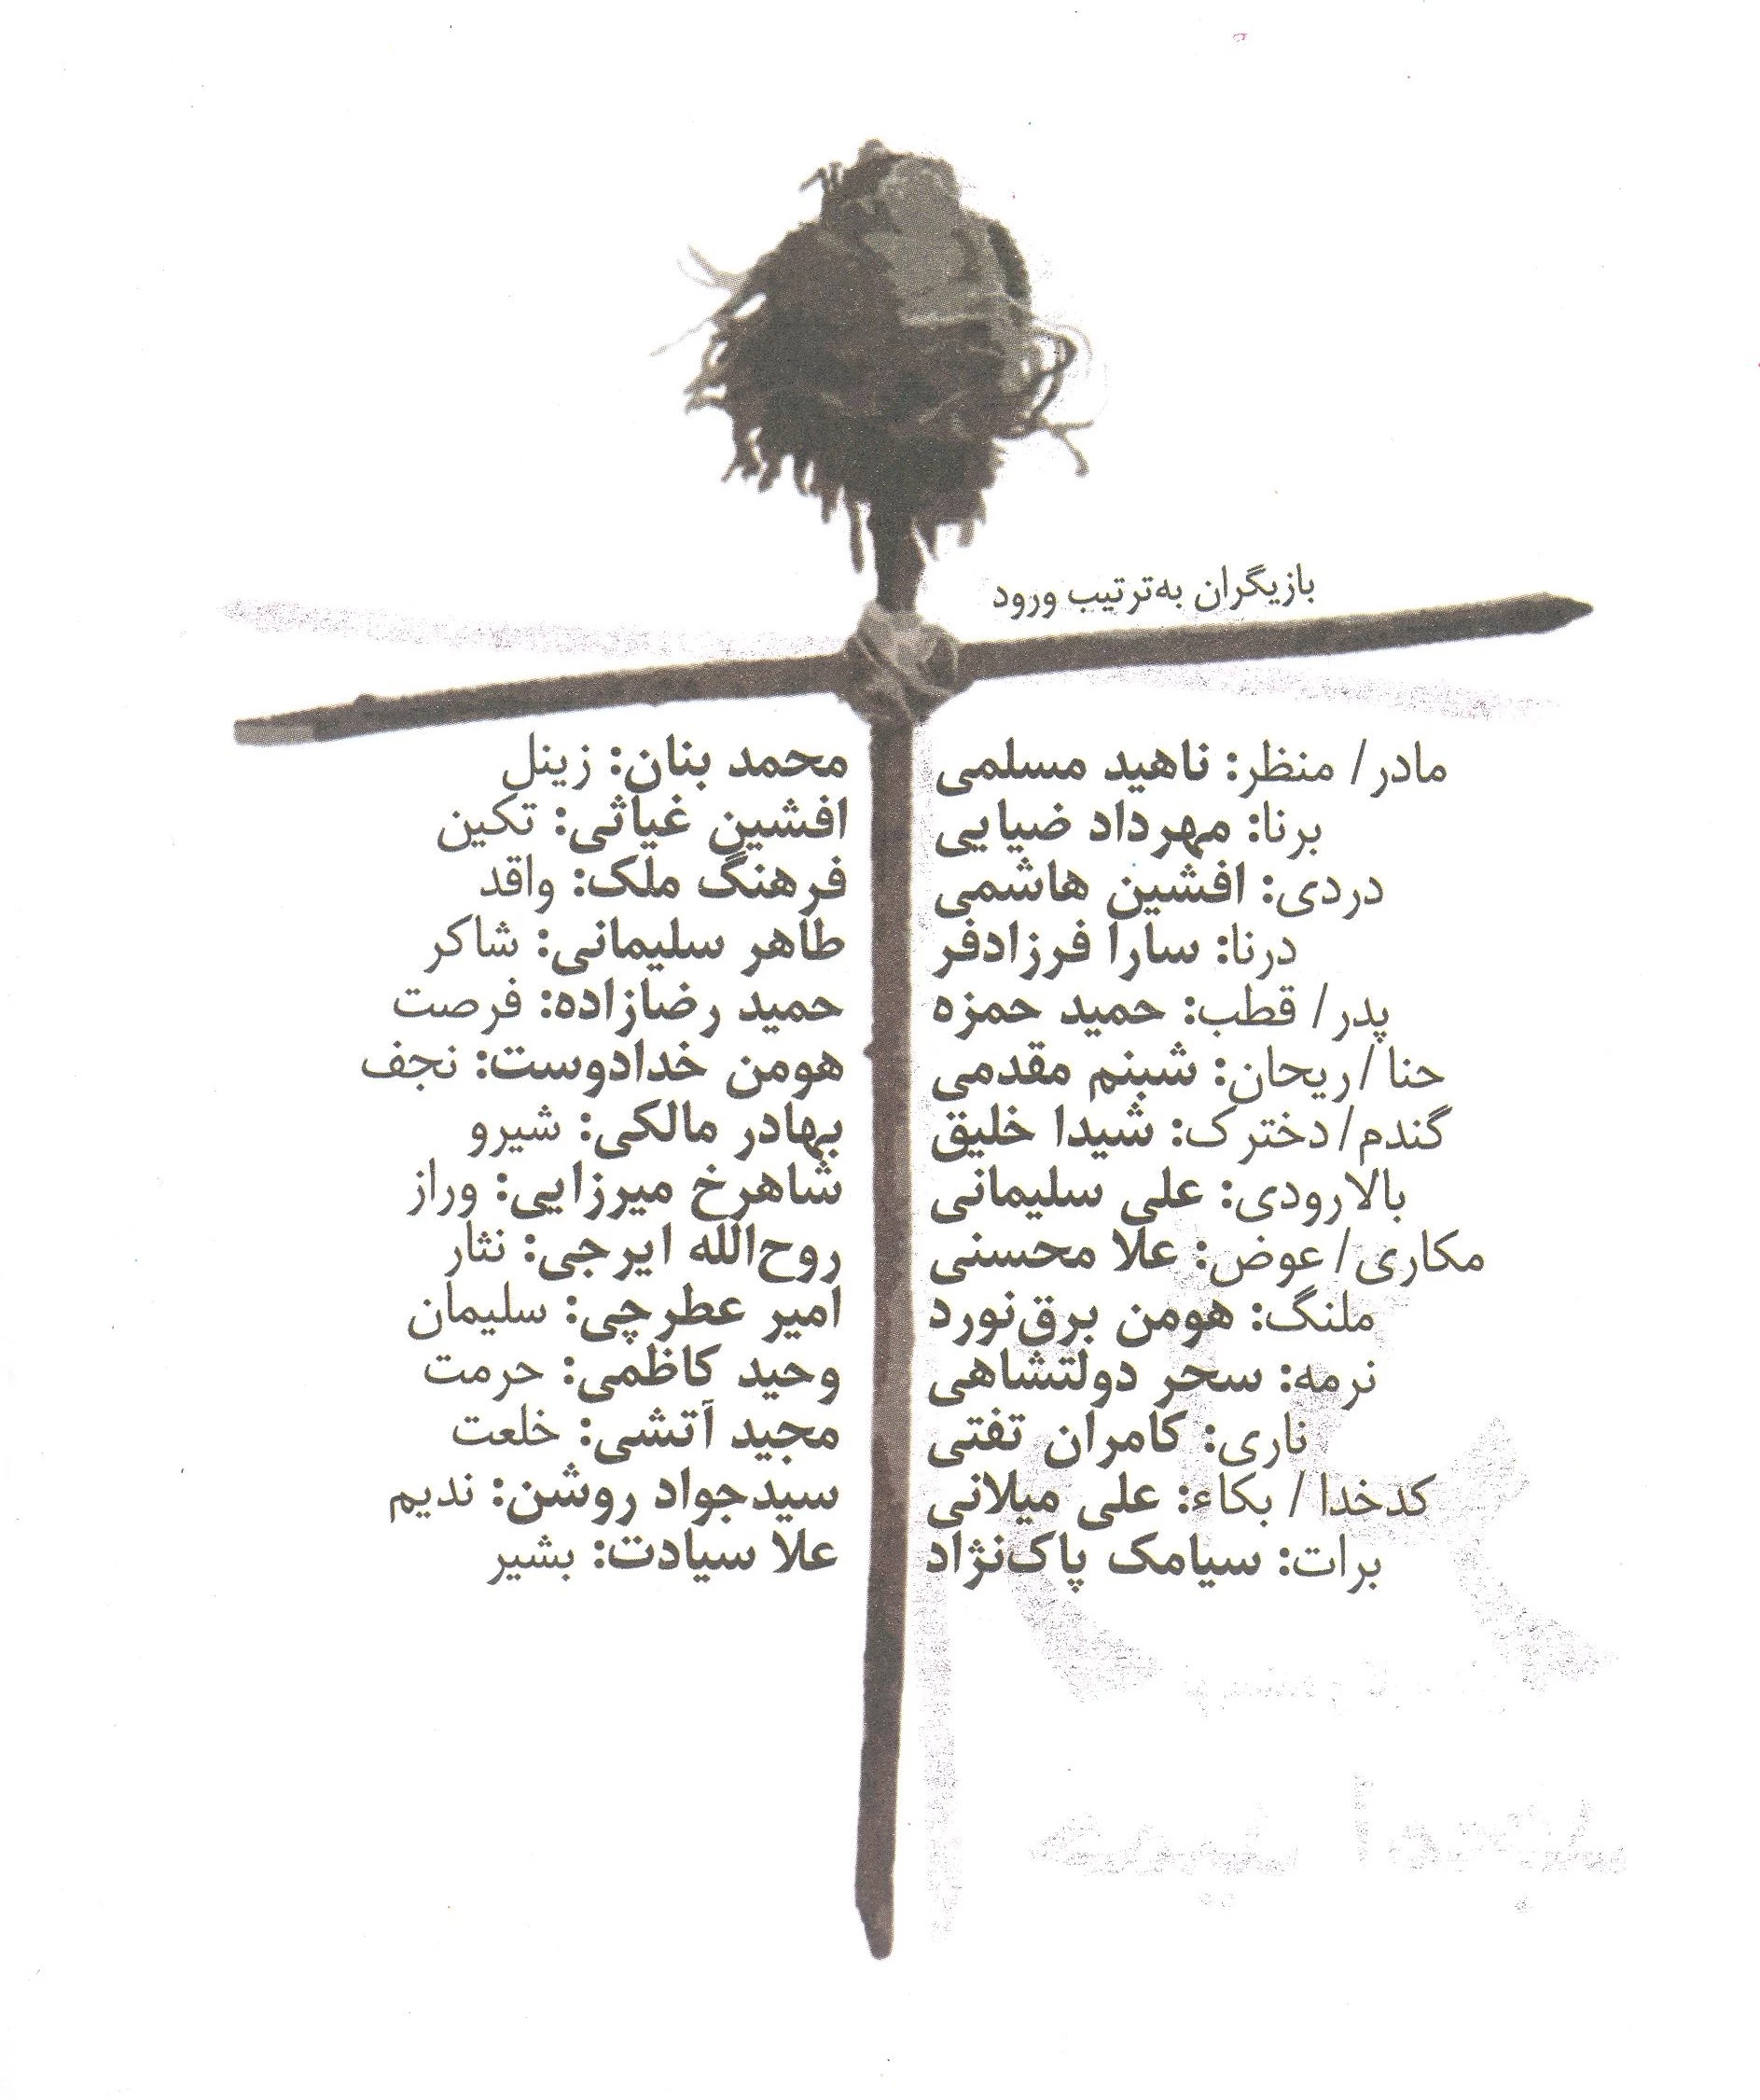 بازیگران به‌ترتیب ورود
مادر/ منظر: ناهید مسلمی
برنا: مهرداد ضیایی
دردی: افشین هاشمی
درنا: سارا فرزادفر
پدر/ قطب: حمید حمزه
حنا/ریحان: شبنم مقدمی
گندم/دخترک: شیدا خلیق
بالارودی: علی سلیمانی
مکاری/ عوض: علا محسنی
ملنگ: هومن برق‌نورد
نرمه: سحر دولتشاهی
ناری: کامران تفتی
کدخدا/ بکاء: علی میلانی
برات: سیامک پاک‌نژاد
محمد بنان: زینل
افشین غیاثی: تکین
فرهنگ ملک: واقد
طاهر سلیمانی: شاکر
حمید رضازاده: فرصت
هومن خدادوست: نجف
بهادر مالکی: شیرو
شاهرخ میرزایی: وراز
روح‌الله ایرجی: نثار
امیر عطرچی: سلیمان
وحید کاظمی: حرمت
مجید آتشی: خلعت
سیدجواد روشن: ندیم
علا سیادت: بشیر